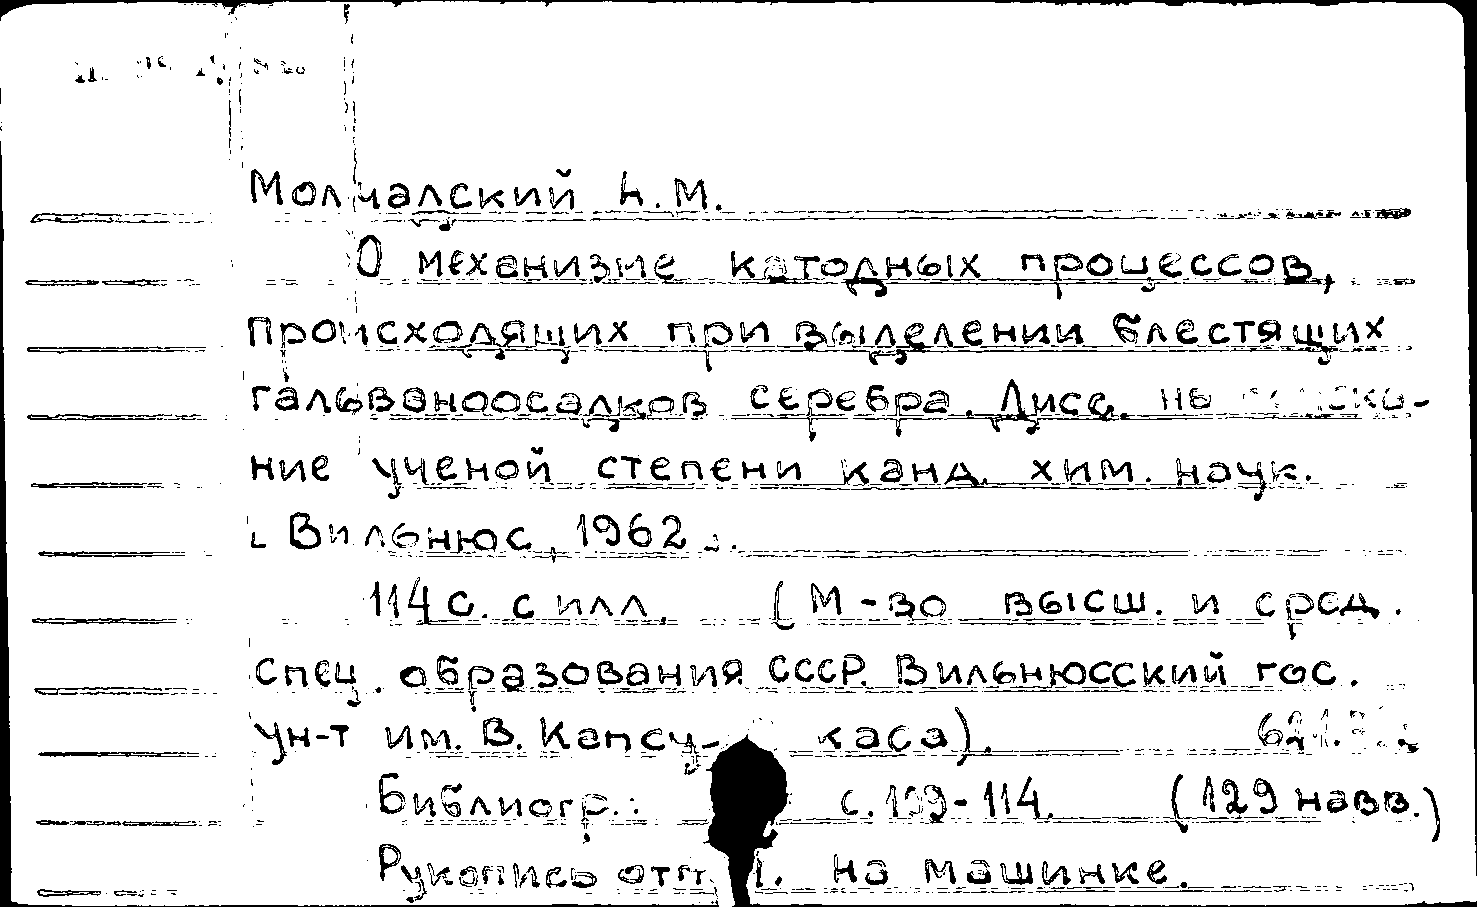 Молчадский М.
О механизме катодных процессов,
происходящих при выделении блестящих
гальваноосадков серебра. Дисс. на
ние ученой степени канд. хим. наук.
Вильнюс, 1962
114 с. с илл. (М-во высш. и сред.
спец. образования СССР. Вильнюсский гос.
ун-т им. В. Капсу- каса).
Библиогр.: с. 109-114. (129 назв.)
Рукопись отп. на машинке.